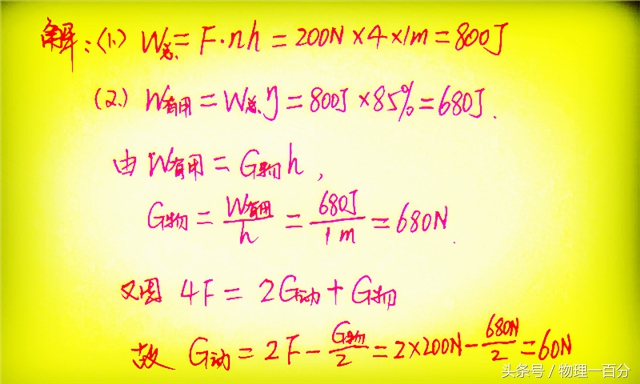 解:(1) W总=F·nh=200N×4×1m=800J
(2) W有用=W总η=800J×85%=680J.
由W有用=G物h,
G物=W有用/h=680J/1m=680N.
又因 4F=2G动+G物
故 G动=2F-G物/2=2×200N-680N/2=60N
头条号 / 物理一百分